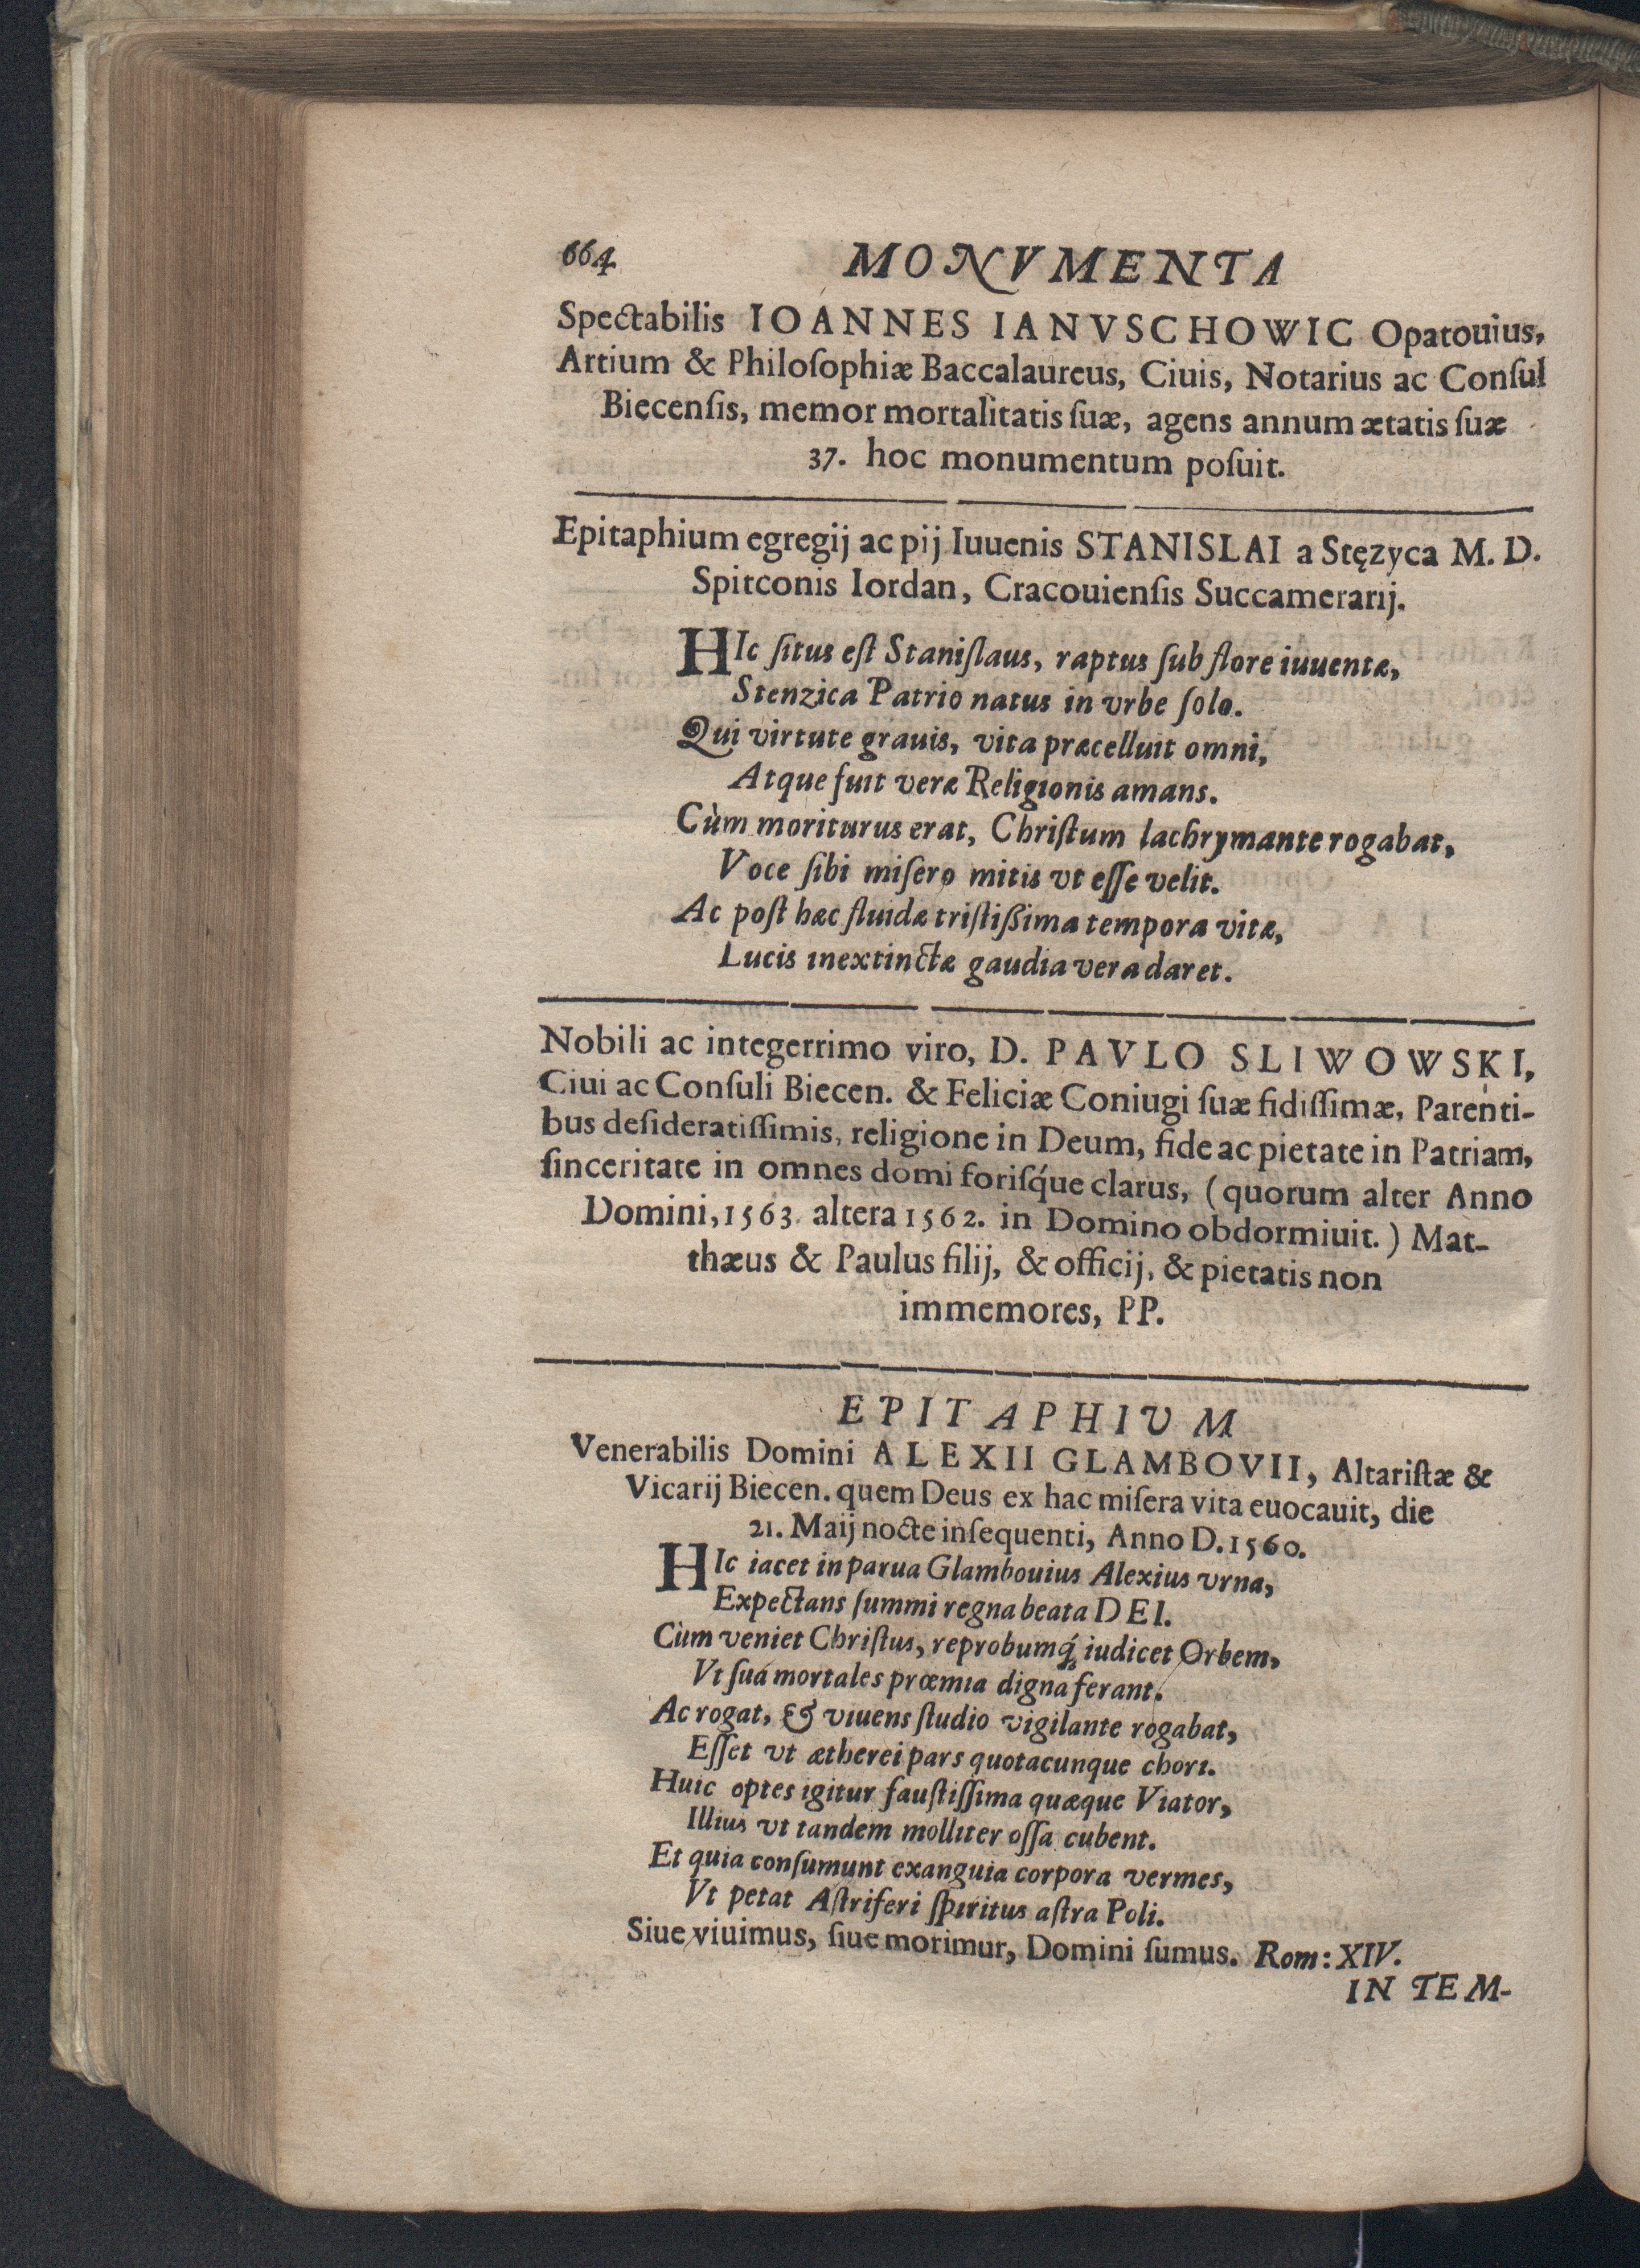 664 MONVMENTA
Spectabilis IOANNES IANVSCHOWIC Opatouius,
Artium & Philoſophiæ Baccalaureus, Ciuis, Notarius ac Conſul
Biecenſis, memor mortalitatis ſuæ, agens annum ætatis ſuæ
37. hoc monumentum poſuit.
Epitaphium egregij ac pij Iuuenis STANISLAI a Stęzyca M. D.
Spitconis Iordan, Cracouienſis Succamerarij.
HIc ſitus eſt Staniſlaus, raptus ſub flore iuuentæ,
Stenzica Patrio natus in vrbe ſolo.
Qui virtute grauis, vita præcelluit omni,
Atque fuit veræ Religionis amans.
Cùm moriturus erat, Chriſtum lachrymante rogabat,
Voce ſibi miſero mitis vt eſſe velit.
Ac poſt hæc fluidæ triſtißima tempora vitæ,
Lucis inextinctæ gaudia vera daret.
Nobili ac integerrimo viro, D. PAVLO SLIWOWSKI,
Ciui ac Conſuli Biecen. & Feliciæ Coniugi ſuæ fidiſſimæ, Parenti-
bus deſideratiſſimis, religione in Deum, fide ac pietate in Patriam,
ſinceritate in omnes domi foriſq́ue clarus, (quorum alter Anno
Domini, 1563. altera 1562. in Domino obdormiuit.) Mat-
thæus & Paulus filij, & officij, & pietatis non
immemores, PP.
EPITAPHIUM
Venerabilis Domini ALEXII GLAMBOVII, Altariſtæ &
Vicarij Biecen. quem Deus ex hac miſera vita euocauit, die
21. Maij nocte inſequenti, Anno D. 1560.
HIc iacet in parua Glambouius Alexius vrna,
Expectans ſummi regna beata DEI.
Cùm veniet Chriſtus, reprobumq́; iudicet Orbem,
Vt ſua mortales prœmia digna ferant.
Ac rogat, & viuens ſtudio vigilante rogabat,
Eſſet vt ætherei pars quotacunque chori.
Huic optes igitur fauſtiſſima quæque Viator,
Illius vt tandem molliter oſſa cubent.
Et quia conſumunt exanguia corpora vermes,
Vt petat Aſtriferi ſpiritus aſtra Poli.
Siue viuimus, ſiue morimur, Domini ſumus. Rom: XIV.
IN TEM-